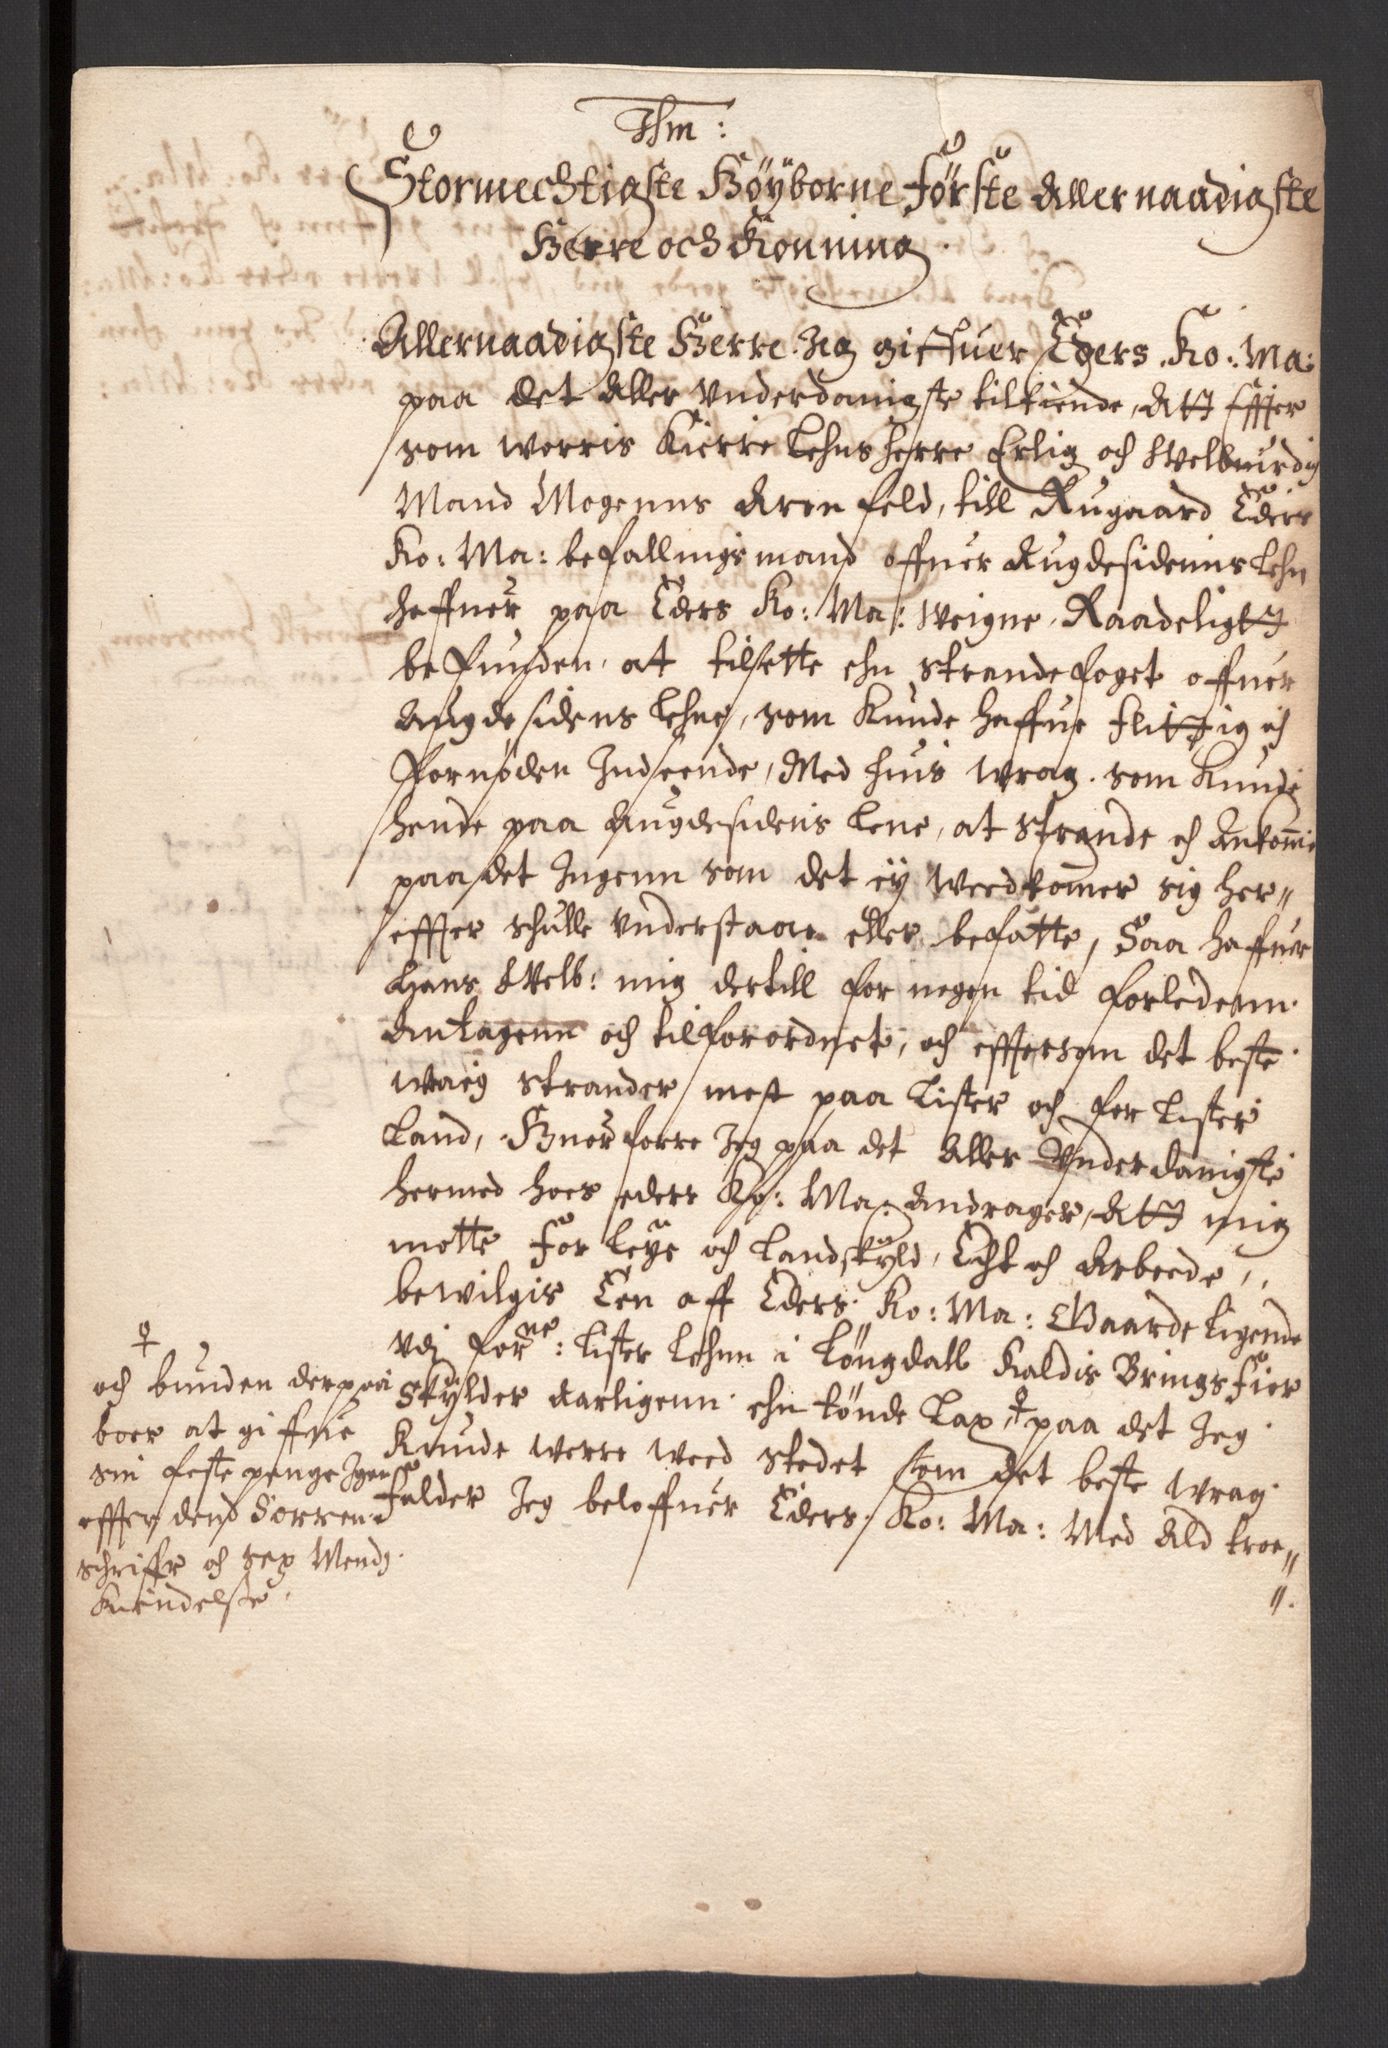 Ihm:
Stormechtigste Höyborne Förste Allernaadigste
Herre och Konning.
Allernaadigste Herre. Jeg giffuer Eders. Ko: Ma:
paa det aller vnderdanigste tilkiende, Att effter
som worris kierre Lehnsherre Erlig och Welbuirdig
Mand Mogenns Arenfeld, till Rugaard Eders
Ko: Ma: befallingsmand offuer Augdesidenns Lehn
haffuer paa Eders Ko: Ma: Weigne, Raadeligtt
befunden, at tilsette ehn strandefoget offuer
Augdesidens Lehne, som kunde haffue flittig och
fornöden Indseende, Med huis wrag som kunde
hende paa Augdesidens Lene, at strande och Ankomme
paa det Ingenn som det ey weedkommer sig her"
effter schulle vnderstaae eller befatte, Saa haffuer
Hans Welb: mig dertill for nogen tid forledenn
Antagenn och tilforordnet, och effttersom det beste
wrag strander mest paa Lister och for Lister
Land, Huorforre Jeg paa det Aller Vnderdanigste
hermed hoes eders Ko: Ma: Andrager, Att mig
motte for leye och Landskyld, Echt och Arbeede,
bewilgis Een aff Eders Ko: Ma: Gaarde ligende
vdj forne: Lister Lehnn i Löngdall kaldis Bringsfier
skylder aarligenn ehn tönde Lax, ♀ paa det Jeg
kunde werre weed stedet som det beste wrag
falder Jeg beloffuer Eders Ko: Ma: Med Ald troe"
".
♀
och bunden derpaa
boer at giffue
sin festepenge Igen
effter dend Norren
schrifft och sex Mends
kiendelse.